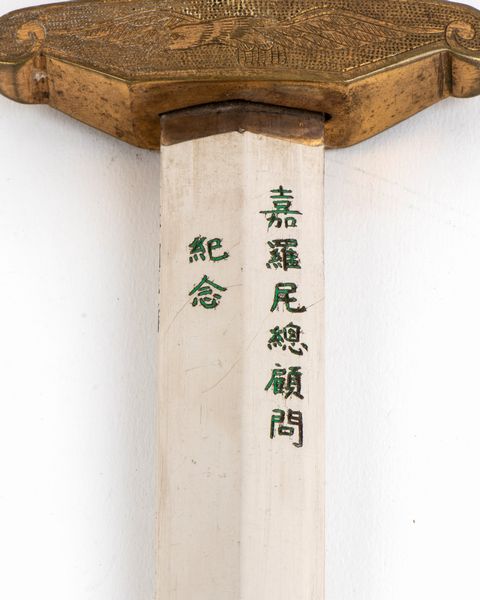 嘉羅尼總顧問
紀念